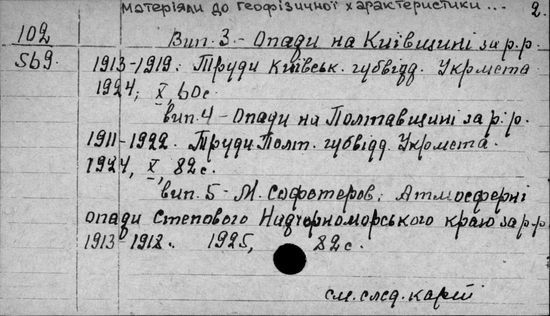 матеріяли до геофізичної характеристики... 2.
102 Вип. 3 - Опади на Київщині за р.р.
569. 1913-1919. Труди Київськ. губвідд. Укрмета
1924, X, 60с.
вип. 4 - Опади на Полтавщині за р.р.
1911-1922. Труди Полт. губвідд. Укрмета.
1924, X, 82с.
вип. 5 - М. Софотеров; Атмосферні
опади Степового Надчорноморського краю за р.р
1913-1918. 1925, 82с.
см. след. карт